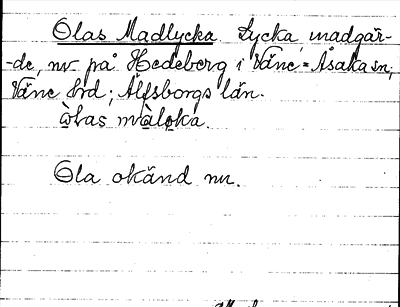 Olas Madlycka. Lycka, madgär-
-de, nv på Hedeberg i Väne-Åsaka sn,
Väne hrd; Älfsborgs län.
ὼlas mὰlo̥ka.
Ola okänd nu.